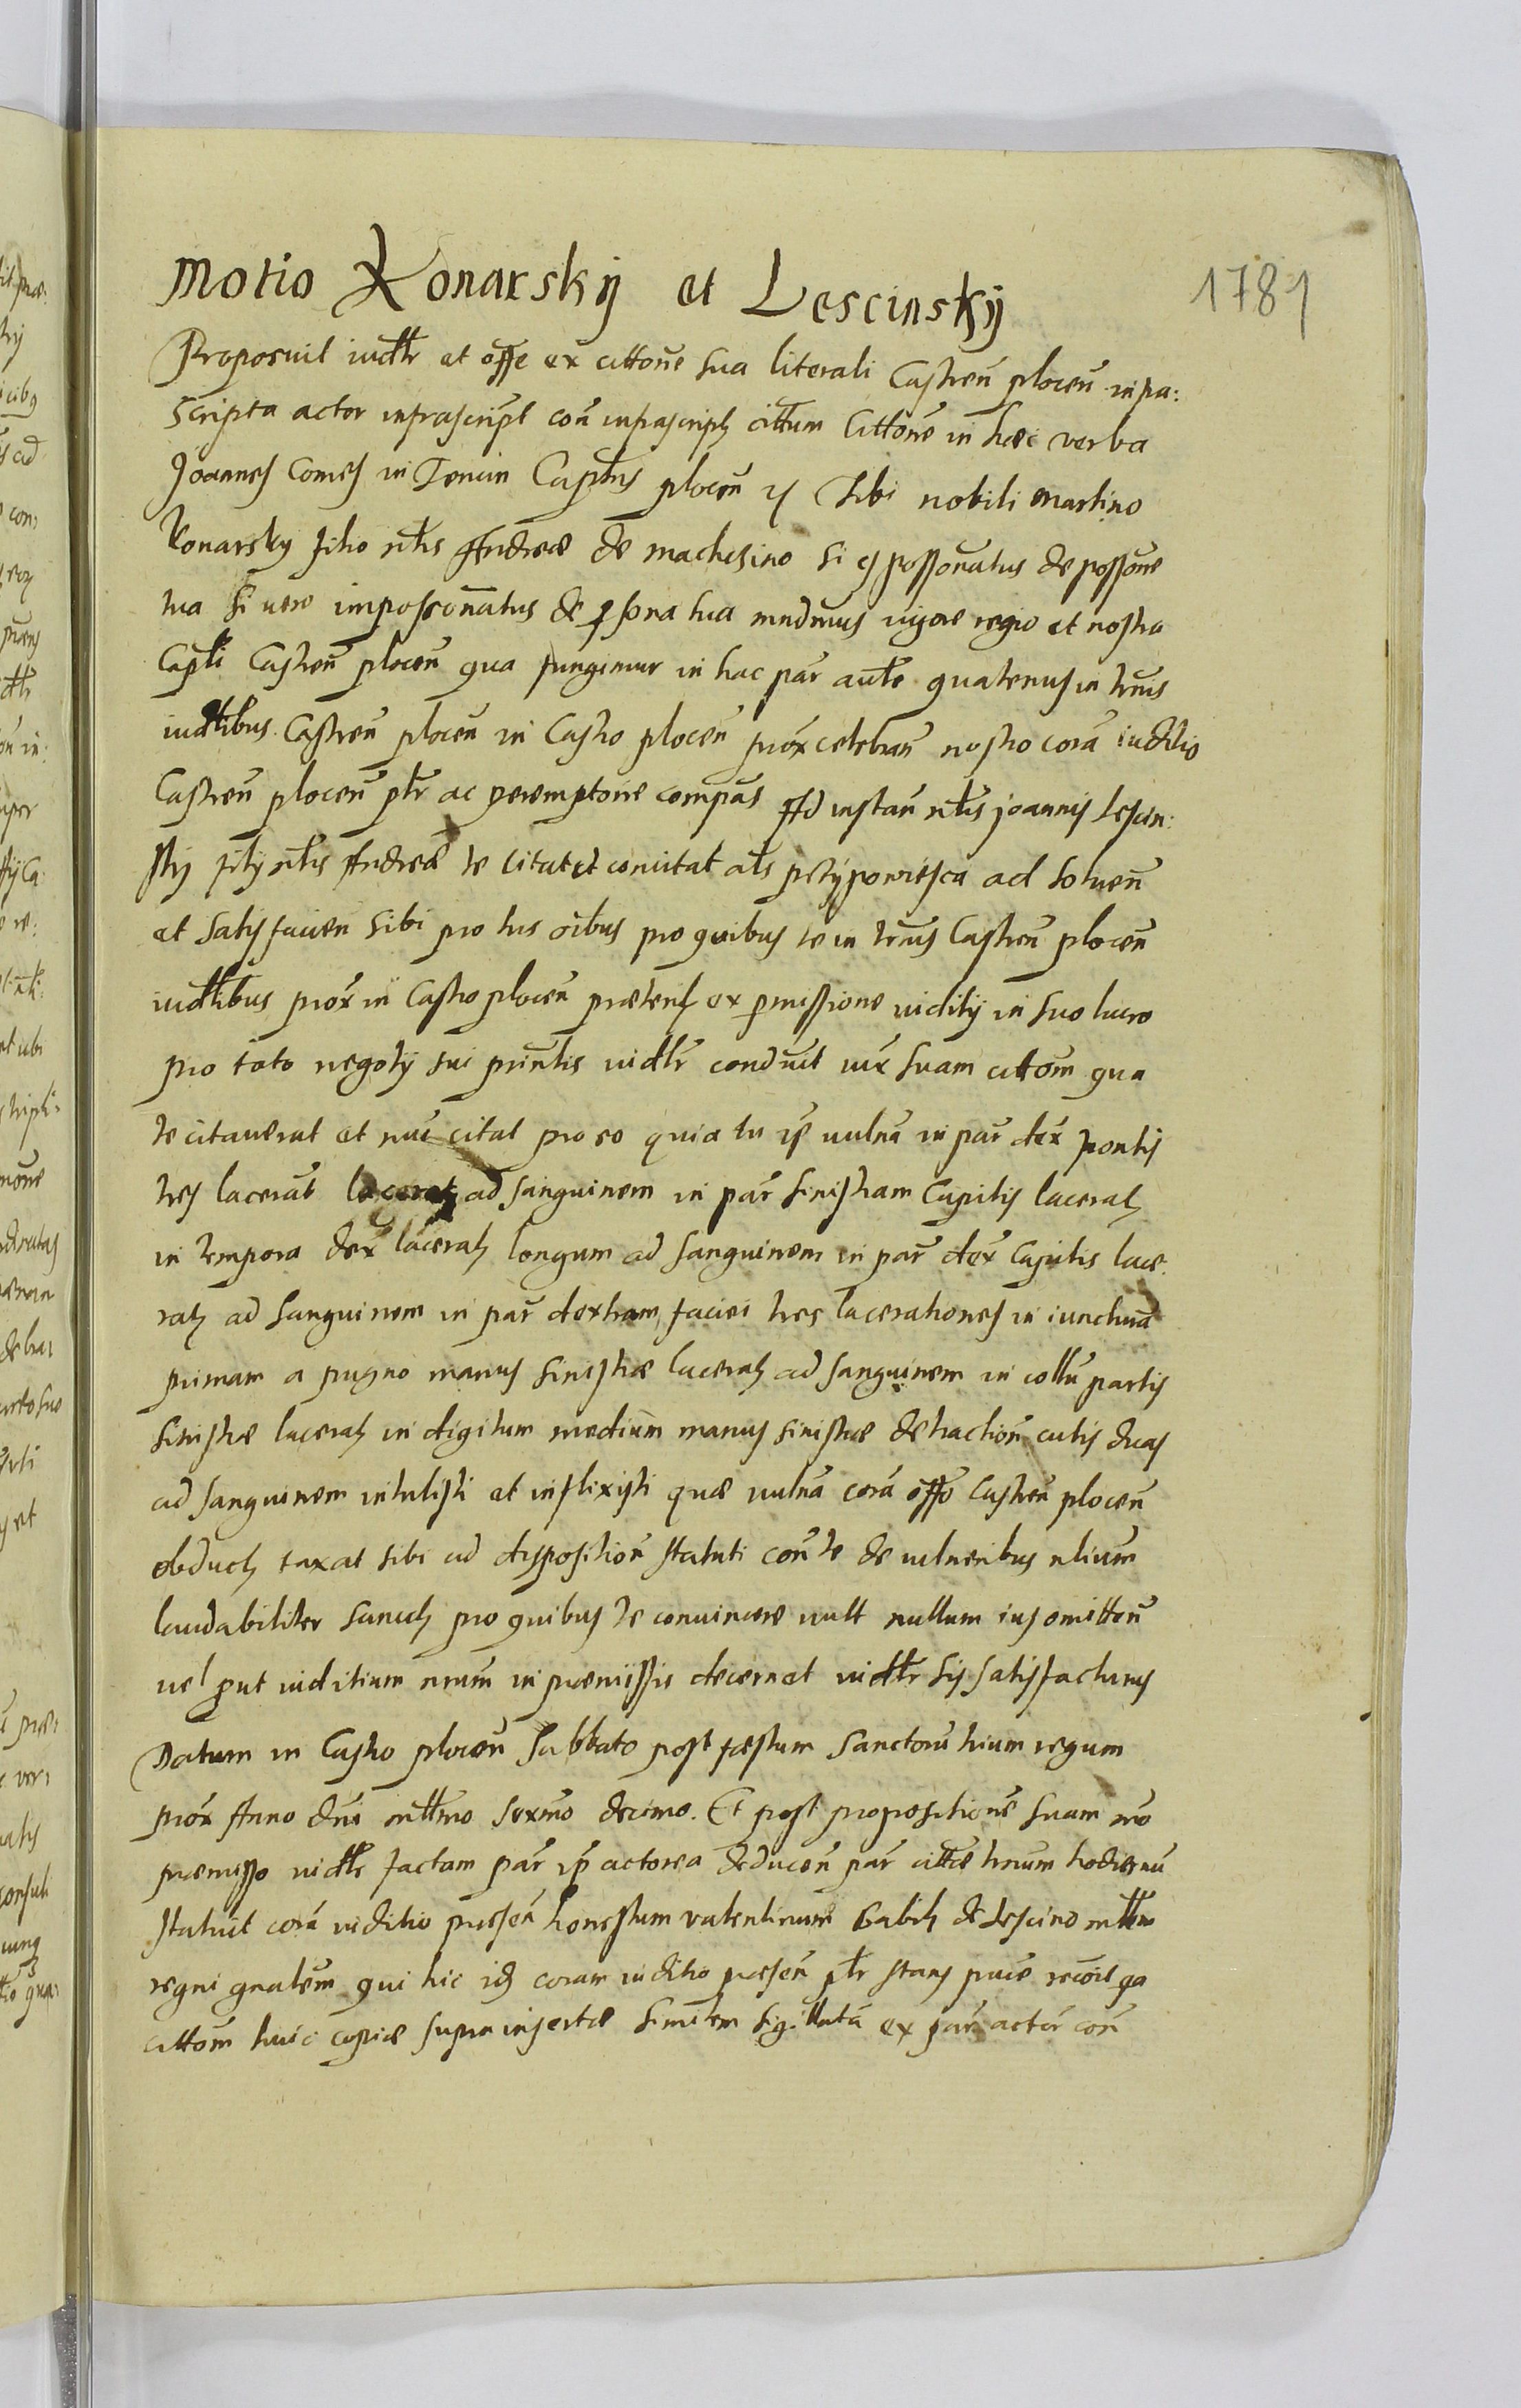 Motio Konarskÿ et Lescinskÿ
1781
Proposuit iudtr et offe ex cittone sua literali Castren plocen infra:
scripta actor infrascript con infrascript cittum Cittone in hæc verba
Joannes Comes in Tencin Captns plocen Tibi nobili Martino
Konarsky filio nlis Andreæ de machcsino si es possonatus de possone
tua si vero impossonatus de psona tua mndmus vigore regio et nostra
Capli Castren plocen qua fungimur in hac par aute quatenus in trnis
iudtibus Castren plocen in Castro plocen prox celebran nostro cora iuditio
Castren plocen ptr ac peremptorie compas Ad instan nlis Joannis Lescin:
skÿ filÿ nlis Andreæ te citat et comitat als przÿpowiesca ad soluen
et satisfacien sibi pro his oibus pro quibus te in trnis Castren plocen
iudtibus prox in Castro plocen præterit ex pmissione iuditÿ in suo lucro
pro toto negotÿ sui prinlis iudtr conduit iux suam cittom qua
te citauerat et nunc citat pro eo quia tu ip vulna in par dex frontis
tres lacerat lacerat ad sanguinem in par sinistram Capitis lacerat
in tempora dex lacerat longum ad sanguinem in par dex Capitis lace:
rat ad sanguinem in par dextram faciei tres lacerationes in iunctura
primam a pugno manus sinistræ lacerat ad sanguinem in collu partis
sinistræ lacerat in digitum medium manus sinistræ detraction cutis duas
ad sanguinem intulisti et inflixisti quæ vulna cora offo Castren plocen
obduct taxat sibi ad disposition statuti con te de vulneribus nlium
laudabiliter sancit pro quibus te conuincere vult nullum ius omitten
vel put iuditium nrum in præmissis decernet iudtr sis satisfacturus
Datum in Castro plocen Sabbato post festum Sanctoru trium regum
prox Anno dni mttmo sexmo decimo. Et post propositione suam mo
præmisso iudtr factam par ip actorea deducen par cittæ trnum hodiernu
statuit cora iuditio presen honestum valentinum Gabit de Lescino mttem
regni gnalem qui hic id coram iuditio præsen ptr stans puie recoit qa
cittom huic copiæ supra insertæ similem sigillata ex par actor con